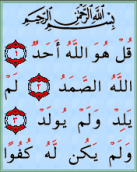 بِسْمِ اللَّهِ الرَّحْمَٰنِ الرَّحِيمِ
قُلْ هُوَ اللَّهُ أَحَدٌ ١
اللَّهُ الصَّمَدُ ٢ لَمْ
يَلِدْ وَلَمْ يُولَدْ ٣
وَلَمْ يَكُن لَّهُ كُفُوًا